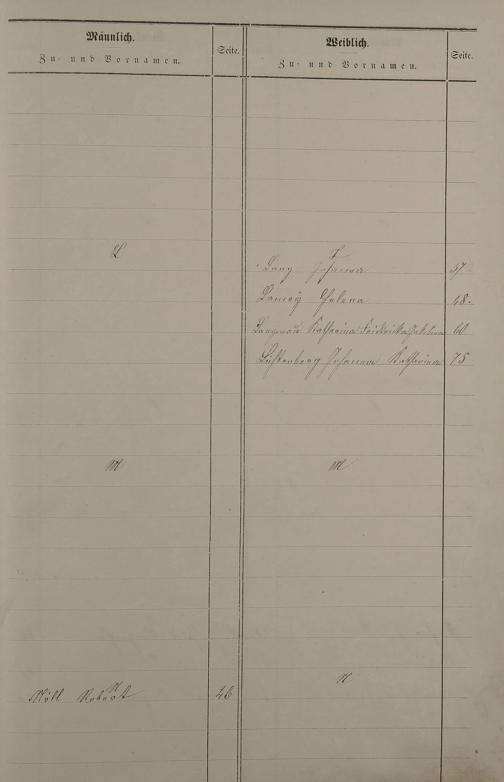 Männlich.
Zu- und Vornamen.
Seite.
Weiblich.
Zu- und Vornamen.
Seite.
L
L
Lang Johanna 37
Lamey Helena 48.
Langenau Katharina Friederika Jakobina 60
Lüstenberg Johanna Katharina 75
M
M
N
N
Nöll Robert 26